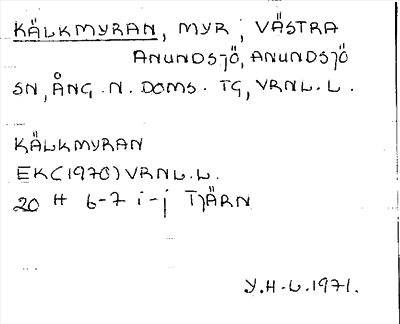 KÄLKMYRAN, MYR, VÄSTRA
ANUNDSJÖ, ANUNDSJÖ
SN, ÅNG. N. DOMS. TG, VRNL.L.
KÄLKMYRAN
EK(1970)VRNL.L.
20 H 6-7 i-j TJÄRN
Y.H-L.1971.